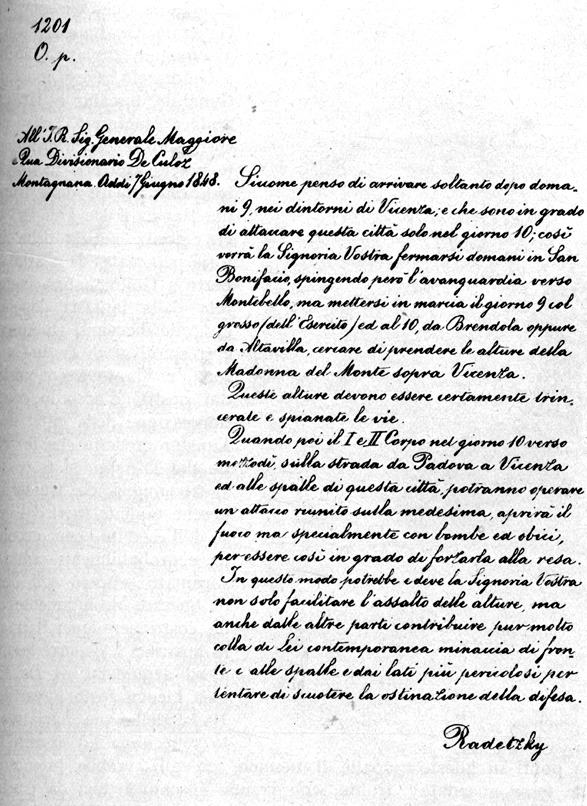 1201
O. p.
All' I. R. Sig. Generale Maggiore
e Qua Divisionario De Culoz
Montagnana. Addì 7 Giugno 1848.
Siccome penso di arrivare soltanto dopo doma-
ni 9, nei dintorni di Vicenza; e che sono in grado
di attaccare questa città solo nel giorno 10; così
vorrà la Signoria Vostra fermarsi domani in San
Bonifacio, spingendo però l'avanguardia verso
Montebello, ma mettersi in marcia il giorno 9 col
grosso (dell'Esercito) ed al 10, da Brendola oppure
da Altavilla, cercare di prendere le alture della
Madonna del Monte sopra Vicenza.
Queste alture devono essere certamente trin-
cerate e spianate le vie.
Quando poi il I e II Corpo nel giorno 10 verso
mezzodì, sulla strada da Padova a Vicenza
ed alle spalle di questa città, potranno operare
un attacco riunito sulla medesima, aprirà il
fuoco ma specialmente con bombe ed obici,
per essere così in grado di forzarla alla resa.
In questo modo potrebbe e deve la Signoria Vostra
non solo facilitare l'assalto delle alture, ma
anche dalle altre parti contribuire pur molto
colla di Lei contemporanea minaccia di fron-
te e alle spalle e dai lati più pericolosi per
tentare di scuotere la ostinazione della difesa.
Radetzky